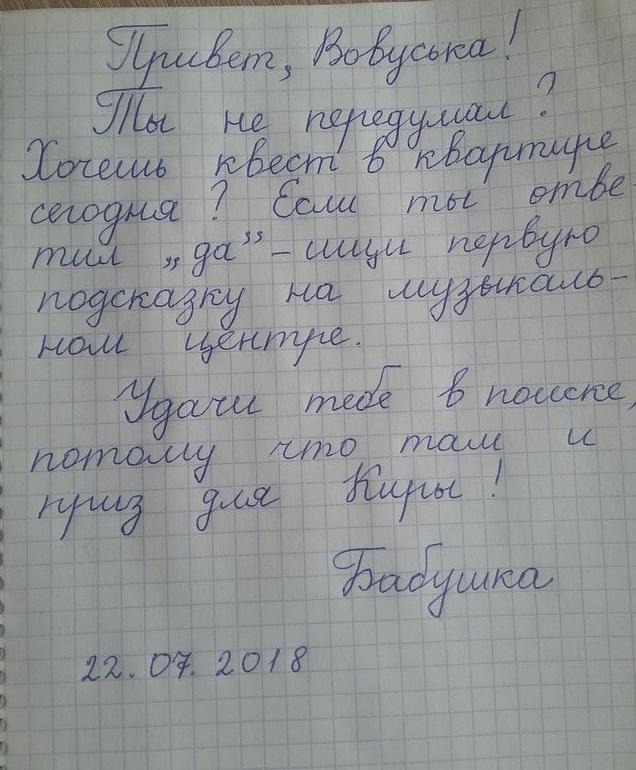 Привет, Вовуська!
Ты не передумал?
Хочешь квест в квартире
сегодня? Если ты отве-
тил „да” – ищи первую
подсказку на музыкаль-
ном центре.
Удачи тебе в поиске,
потому что там и
приз для Киры!
Бабушка
22.07.2018